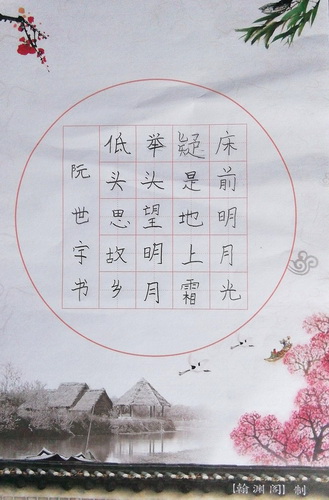 床前明月光
疑是地上霜
举头望明月
低头思故乡
阮世宇书
【翰渊阁】制